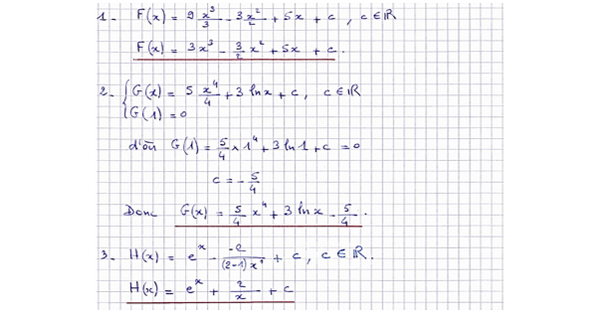 1- F(x) = 9 x³/3 - 3x²/2 + 5x + c, c ∈ ℝ
F(x) = 3x³ - 3/2 x² + 5x + c.
2- { G(x) = 5 x⁴/4 + 3 ln x + c, c ∈ ℝ
G(1) = 0
d'où G(1) = 5/4 × 1⁴ + 3 ln 1 + c = 0
c = - 5/4
Donc G(x) = 5/4 x⁴ + 3 ln x - 5/4.
3- H(x) = eˣ - -2/((2-1)x¹) + c, c ∈ ℝ.
H(x) = eˣ + 2/x + c